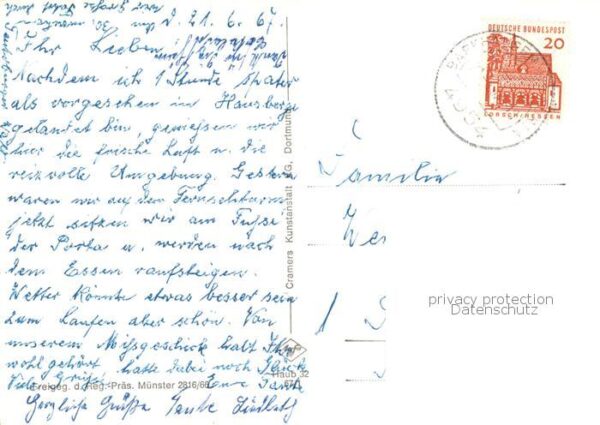 d. 21. 6. 67.
Ihr Lieben,
Nachdem ich 1 Stunde später
als vorgesehen in Hausberge
gelandet bin, geniessen wir
hier die frische Luft u. die
reizvolle Umgebung. Gestern
waren wir auf dem Fernsehturm
jetzt sitzen wir am Fuße
der Porta u. werden nach
dem Essen raufsteigen.
Wetter könnte etwas besser sein
zum Laufen aber schön. Von
unserem Missgeschick habt Ihr
wohl gehört hatte dabei noch Glück
Viele Grüße Eure Tante
Herzliche Grüße Tante
Freigeg. d. Reg.-Präs. Münster 2816/66
Haub 32
Cramers Kunstanstalt KG, Dortmund
DEUTSCHE BUNDESPOST
20
LORSCH/HESSEN
Familie
privacy protection
Datenschutz